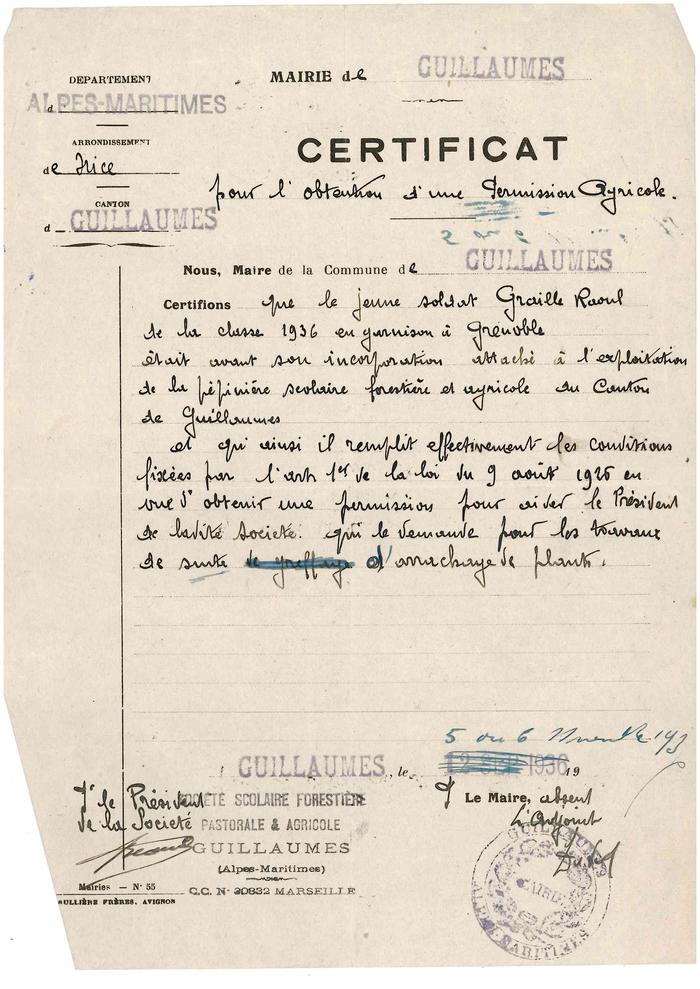 DEPARTEMENT
d ALPES-MARITIMES
ARRONDISSEMENT
de Nice
CANTON
d GUILLAUMES
MAIRIE de GUILLAUMES
CERTIFICAT
pour l'obtention d'une Permission Agricole.
Nous, Maire de la Commune de GUILLAUMES
Certifions que le jeune soldat Graille Raoul
de la classe 1936 en garnison à Grenoble
était avant son incorporation attaché à l'exploitation
de la pépinière scolaire forestière et agricole du Canton
de Guillaumes
et qui ainsi il remplit effectivement les conditions
fixées par l'art 1er de la loi du 9 août 1926 en
vue d'obtenir une permission pour aider le Président
de ladite Societé. qui le demande pour les travaux
de suite de greffage d'arrachage de plants.
5 ou 6 193
GUILLAUMES, le 1936 19
Le Président
de la Societé
SOCIÉTÉ SCOLAIRE FORESTIÈRE
PASTORALE & AGRICOLE
GUILLAUMES
(Alpes-Maritimes)
C.C. N° 30832 MARSEILLE
Le Maire, absent
L'Adjoint
GUILLAUMES
MAIRIE
ALPES-MARITIMES
Mairies — N° 55
FRÈRES, AVIGNON